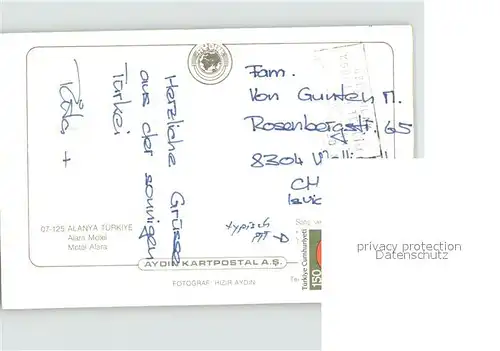 Herzliche Grüsse
aus der sonnigen
Türkei
Fam.
Von Gunten M.
Rosenbergstr. 65
8304
CH
typisch
07-125 ALANYA TÜRKIYE
Alara Motel
Motel Alara
AYDIN KARTPOSTAL A.Ş.
FOTOGRAF: HIZIR AYDIN
Türkiye Cumhuriyeti
150
privacy protection
Datenschutz